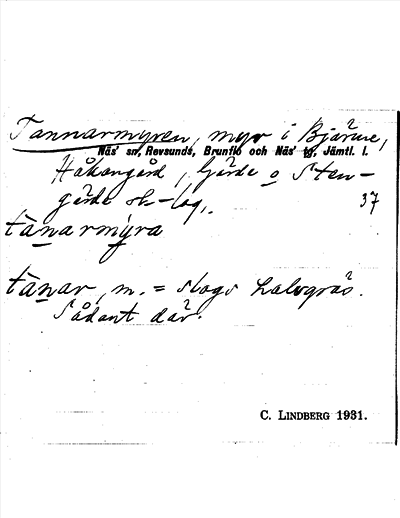 Tannarmyren, myr i Bjärme,
Näs' sn, Revsunds, Brunflo och Näs' tg, Jämtl. l.
Håkangård, Gärde o Sten-
gärde sk-lag,. 37
tànarmýra
tànar, m. = slags halvgräs.
Sådant där.
C. LINDBERG 1931.